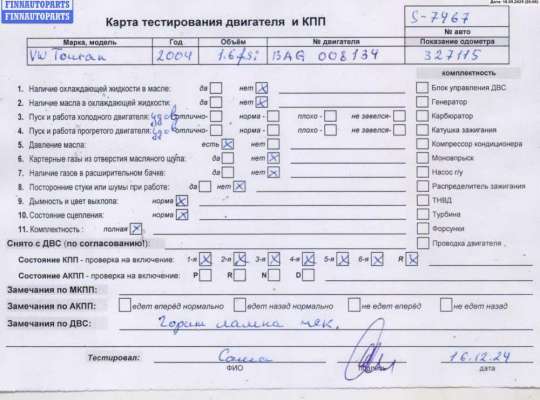 FINNAUTOPARTS
FINNAUTOPARTS
Карта тестирования двигателя и КПП
S-7467
№ авто
Марка, модель Год Объём № двигателя Показание одометра
VW Touran 2004 1.6 fsi BAG 008134 327115
комплектность
1. Наличие охлаждающей жидкости в масле: да нет x Блок управления ДВС
2. Наличие масла в охлаждающей жидкости: да нет x Генератор
3. Пуск и работа холодного двигателя: удов отлично- норма - плохо - не завелся- Карбюратор
4. Пуск и работа прогретого двигателя: удов отлично- норма - плохо - не завелся- Катушка зажигания
5. Давление масла: есть x нет Компрессор кондиционера
6. Картерные газы из отверстия масляного щупа: да нет x Моновпрыск
7. Наличие газов в расширительном бачке: да нет x Насос г/у
8. Посторонние стуки или шумы при работе: да нет x Распределитель зажигания
9. Дымность и цвет выхлопа: норма x ТНВД
10. Состояние сцепления: норма x Турбина
11. Комплектность : полная x Форсунки
Снято с ДВС (по согласованию!): Проводка двигателя
Состояние КПП - проверка на включение: 1-я x 2-я x 3-я x 4-я x 5-я x 6-я x R x
Состояние АКПП - проверка на включение: P R N D
Замечания по МКПП:
Замечания по АКПП: едет вперёд нормально едет назад нормально не едет вперёд не едет назад
Замечания по ДВС: Горит лампа чек.
Тестировал: Саша 16.12.24
ФИО подпись дата